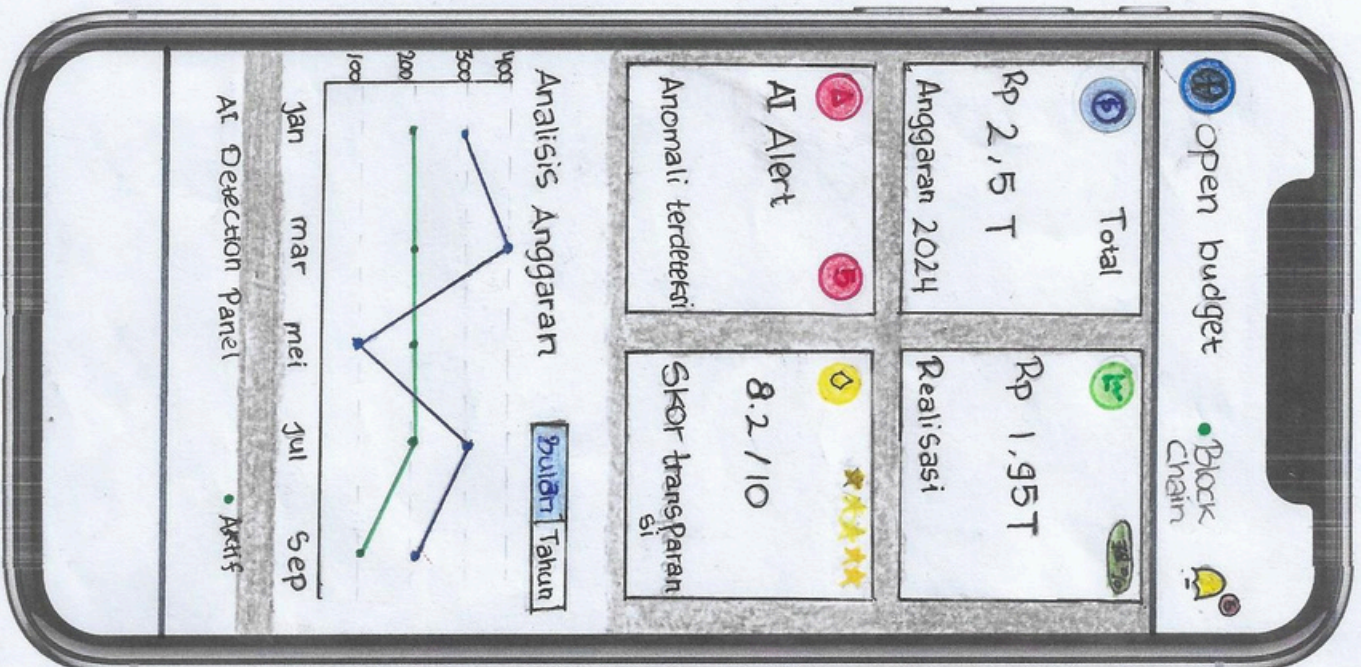 open budget
• Block
Chain
6
Total
Rp 2,5 T
Anggaran 2024
Rp 1,95T
Realisasi
5
AI Alert
Anomali terdeteksi
8.2 / 10
Skor transparan
si
Analisis Anggaran
Bulan Tahun
400
300
200
100
Jan mar mei Jul Sep
AI Detection Panel • Aktif